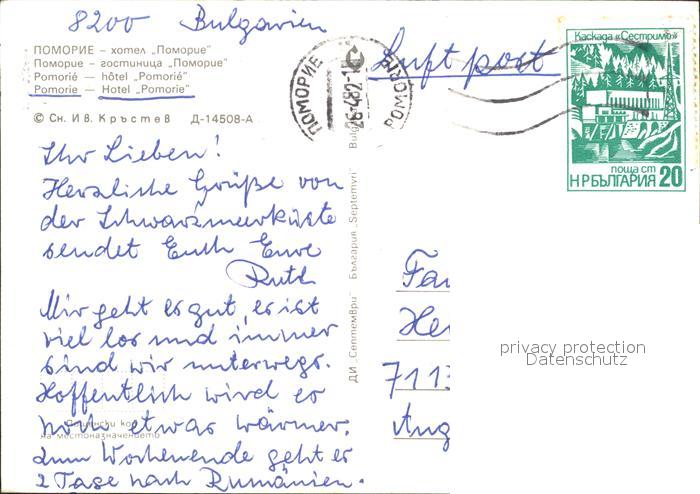 8200 Bulgarien
ПОМОРИЕ – хотел „Поморие"
Поморие – гостиница „Поморие"
Pomorié — hôtel „Pomorié"
Pomorie — Hotel „Pomorie"
© Сн. Ив. Кръстев Д-14508-А
Luftpost
ПОМОРИЕ
POMORIE
Каскада „Сестримо"
поща ст
НРБЪЛГАРИЯ 20
Ihr Lieben!
Herzliche Grüße von
der Schwarzmeerküste
sendet Euch Eure
Ruth
Mir geht es gut, es ist
viel los und immer
sind wir unterwegs.
Hoffentlich wird es
noch etwas wärmer.
Zum Wochenende geht es
2 Tage nach Rumänien.
на местоназначението
ДИ „Септември" България „Septemvri"
Fa
He
711
Aug
privacy protection
Datenschutz